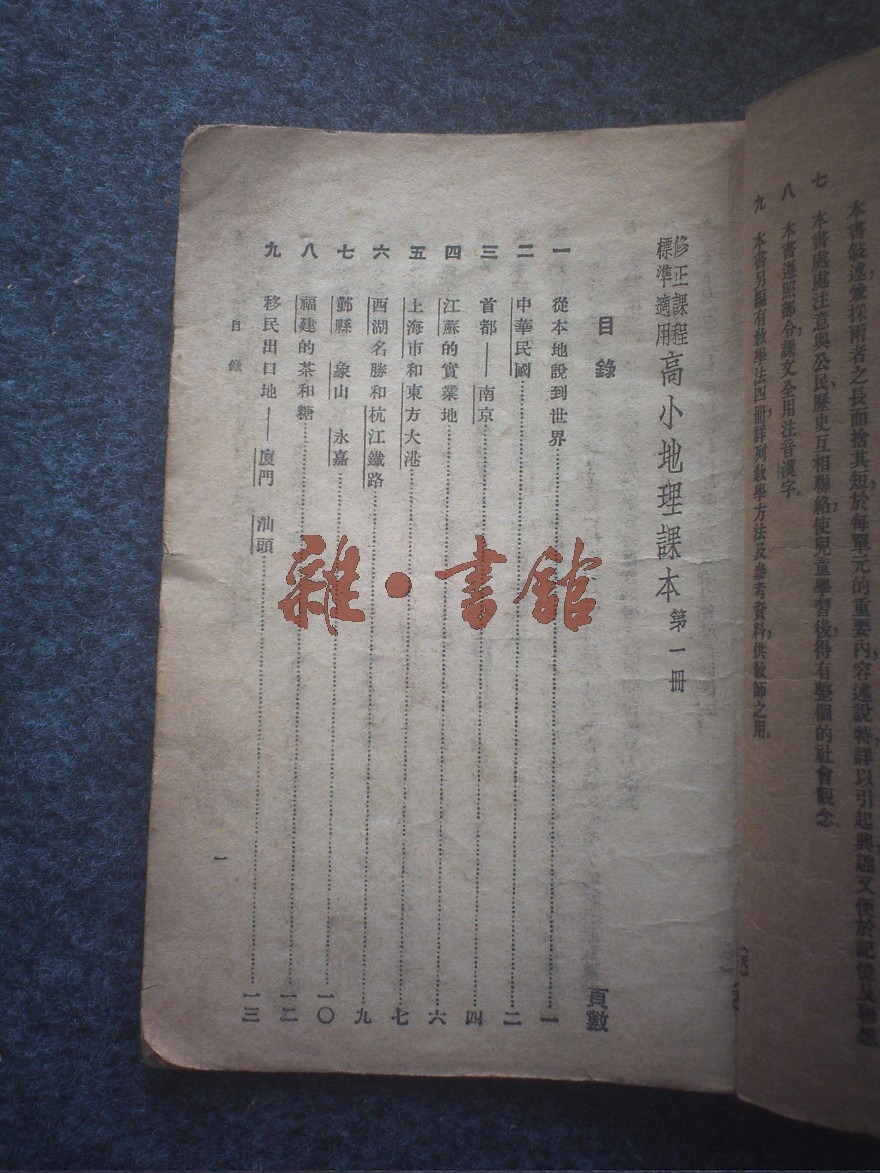 本書敍述兼採兩者之長而捨其短於每單元的重要內容述說特詳以引起興趣又便於記憶及聯想
七 本書處處注意與公民、歷史互相聯絡使兒童學習後得有整個的社會觀念。
八 本書遵照部令，課文全用注音漢字。
九 本書另編有教學法四冊詳列教學方法及參考資料，供教師之用。
修正課程標準適用 高小地理課本 第一冊
目錄 頁數
一 從本地說到世界 一
二 中華民國 二
三 首都——南京 四
四 江蘇的實業地 六
五 上海市和東方大港 七
六 西湖名勝和杭江鐵路 九
七 鄞縣 象山 永嘉 一〇
八 福建的茶和糖 一二
九 移民出口地——廈門 汕頭 一三
目錄 一
雜·書館